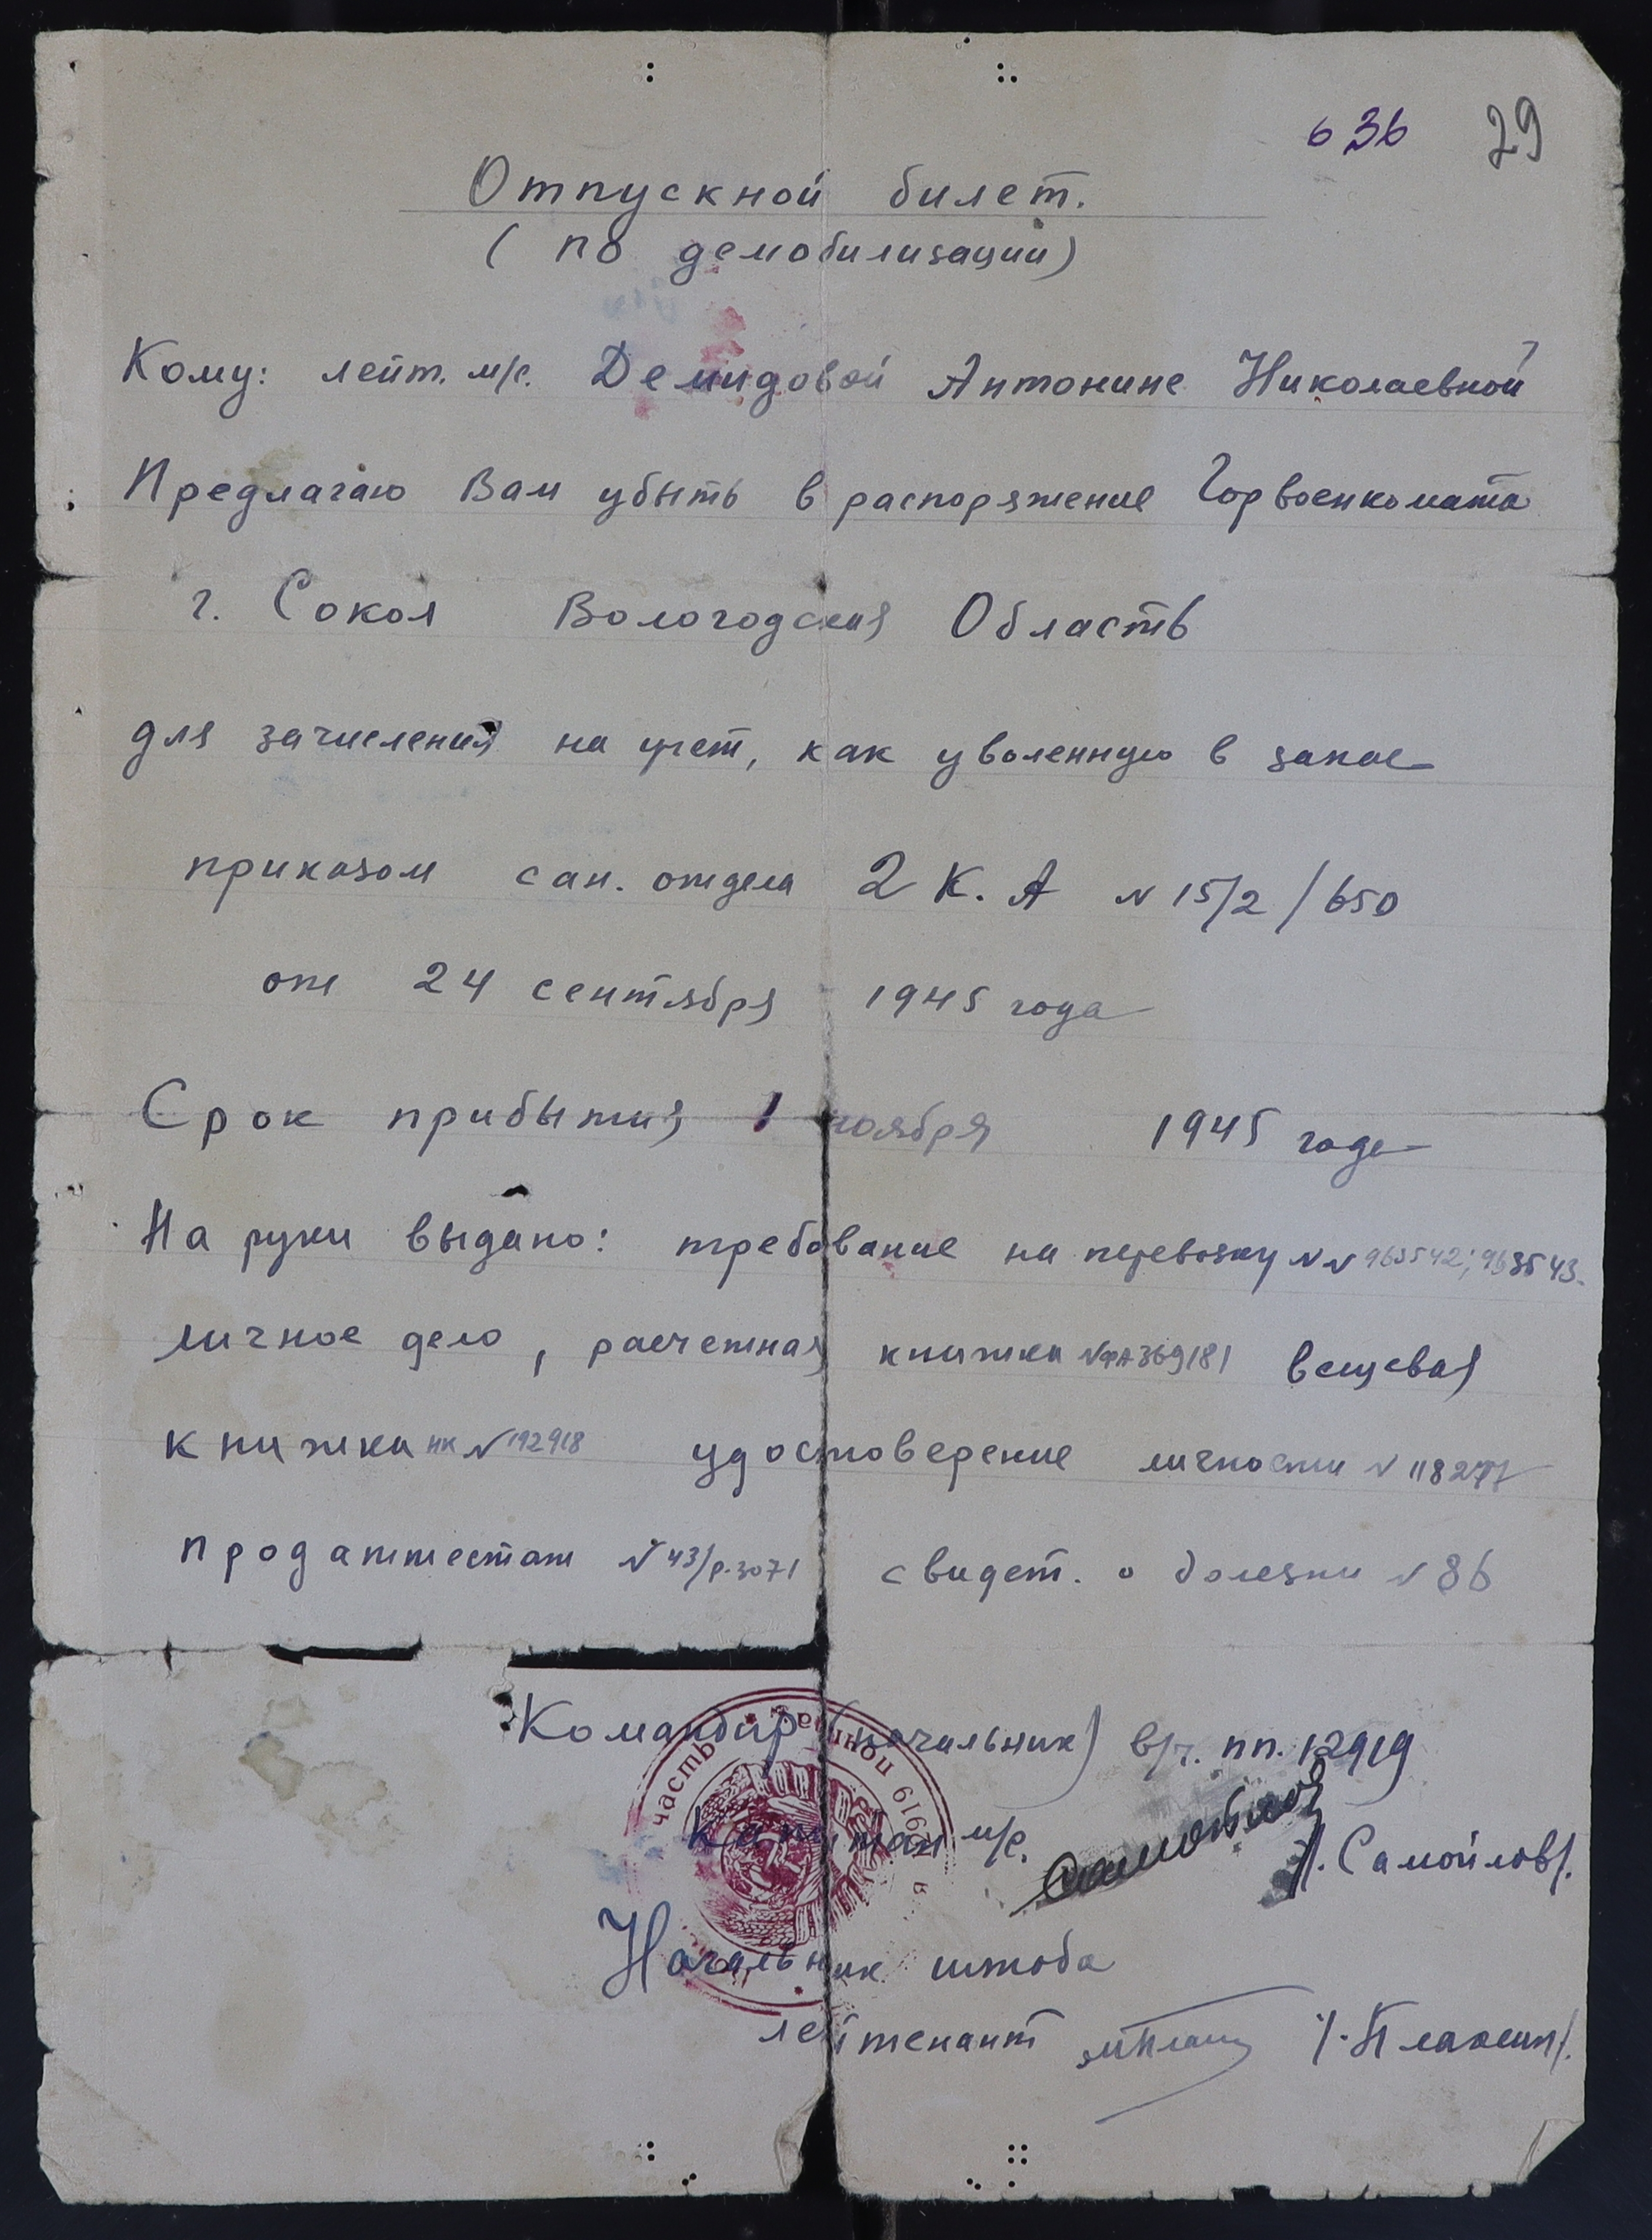 636 29
Отпускной билет.
(по демобилизации)
Кому: лейт. м/с. Демидовой Антонине Николаевной
Предлагаю Вам убыть в распоряжение Горвоенкомата
г. Сокол Вологодская Область
для зачисления на учет, как уволенную в запас
приказом сан. отдела 2 К. А N 15/2/650
от 24 сентября 1945 года
Срок прибытия 1 ноября 1945 года
На руки выдано: требование на перевозку NN 963542; 963543.
личное дело, расчетная книжка N ФА 369181 вещевая
книжка НК N 192918 удостоверение личности N 118277
продаттестат N 43/р-3071 свидет. о болезни N 86
Командир (начальник) в/ч. пп. 12919
капитан м/с. Самойлов /. Самойлов/.
Начальник штаба
лейтенант /. Плаксин/.
часть полевая 12919